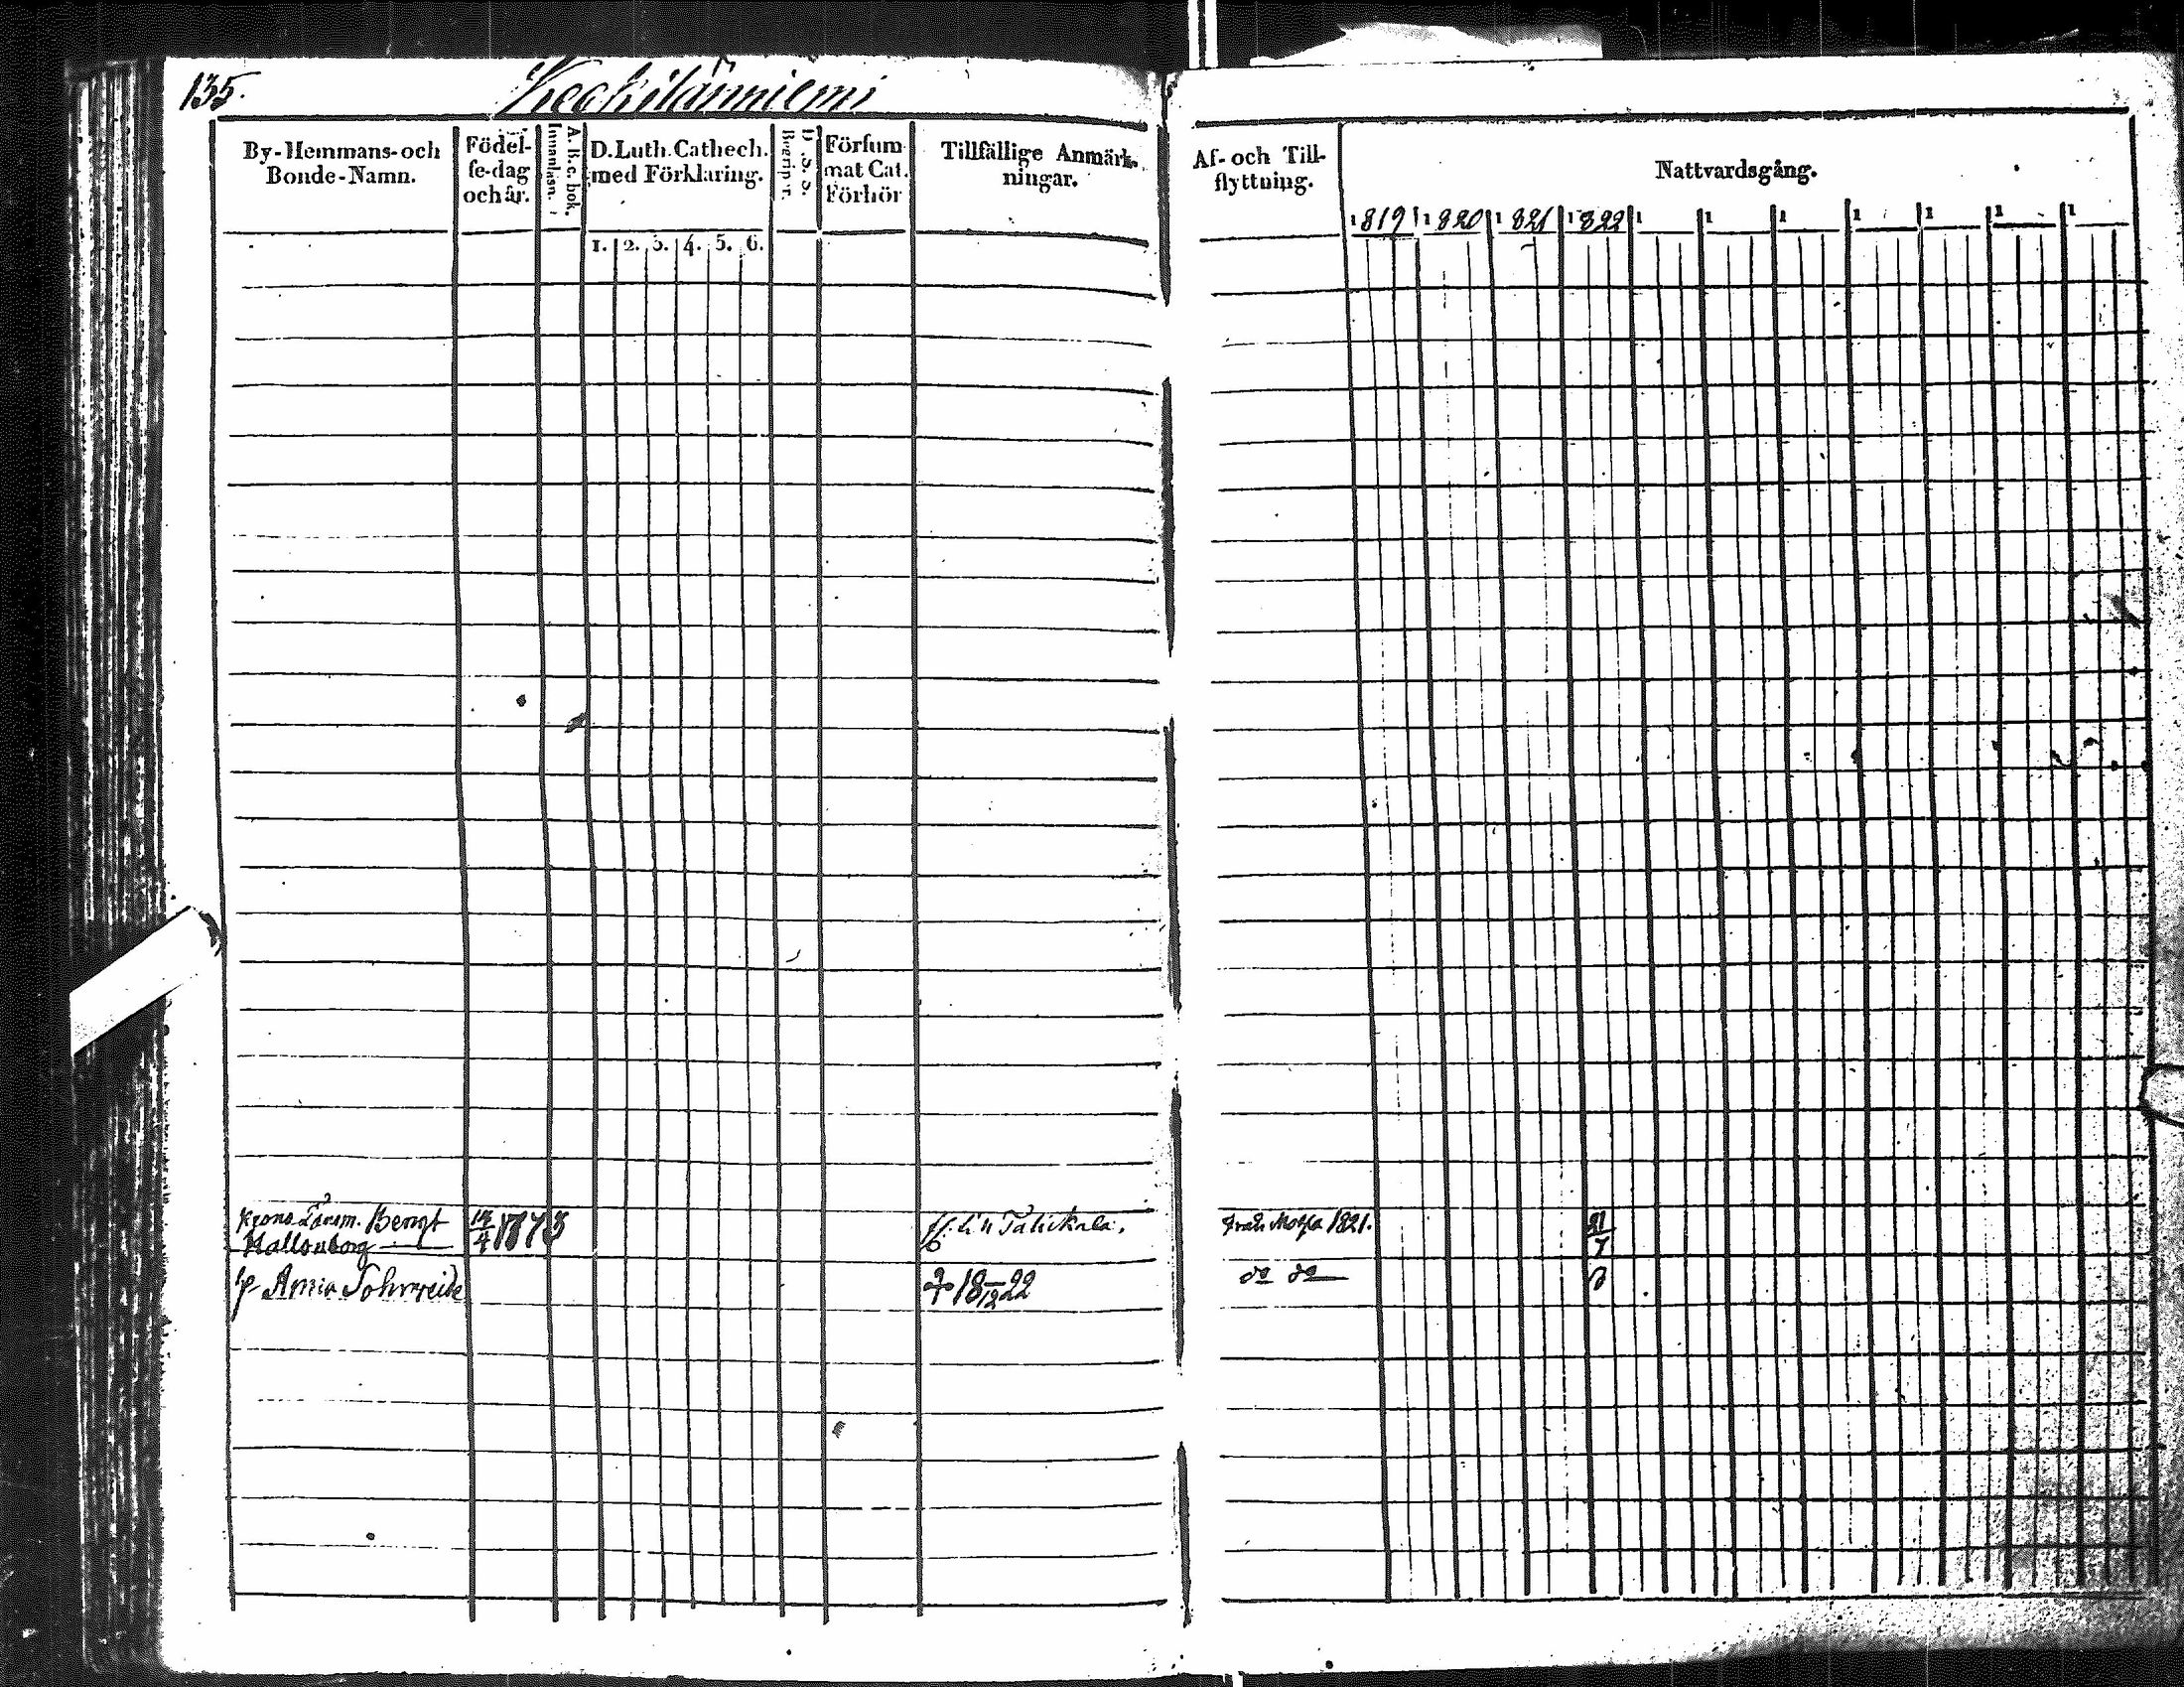 135.
Keckilänniemi
By-Hemmans-och Bonde-Namn.
Födelse-dag och år.
A. B. c. bok.
Innanläsn.
D. Luth. Cathech. med Förklaring.
1. 2. 3. 4. 5. 6.
D. S. S.
Försummat Cat. Förhör
Tillfällige Anmärkningar.
Af- och Tillflyttning.
Nattvardsgång.
1819 1820 1821 1822 1 1 1 1 1 1 1
Krono Länsm. Bengt
Hallonborg
14/4 1873
Från 1821.
21/7
Anna
† 18 /12 22
do do